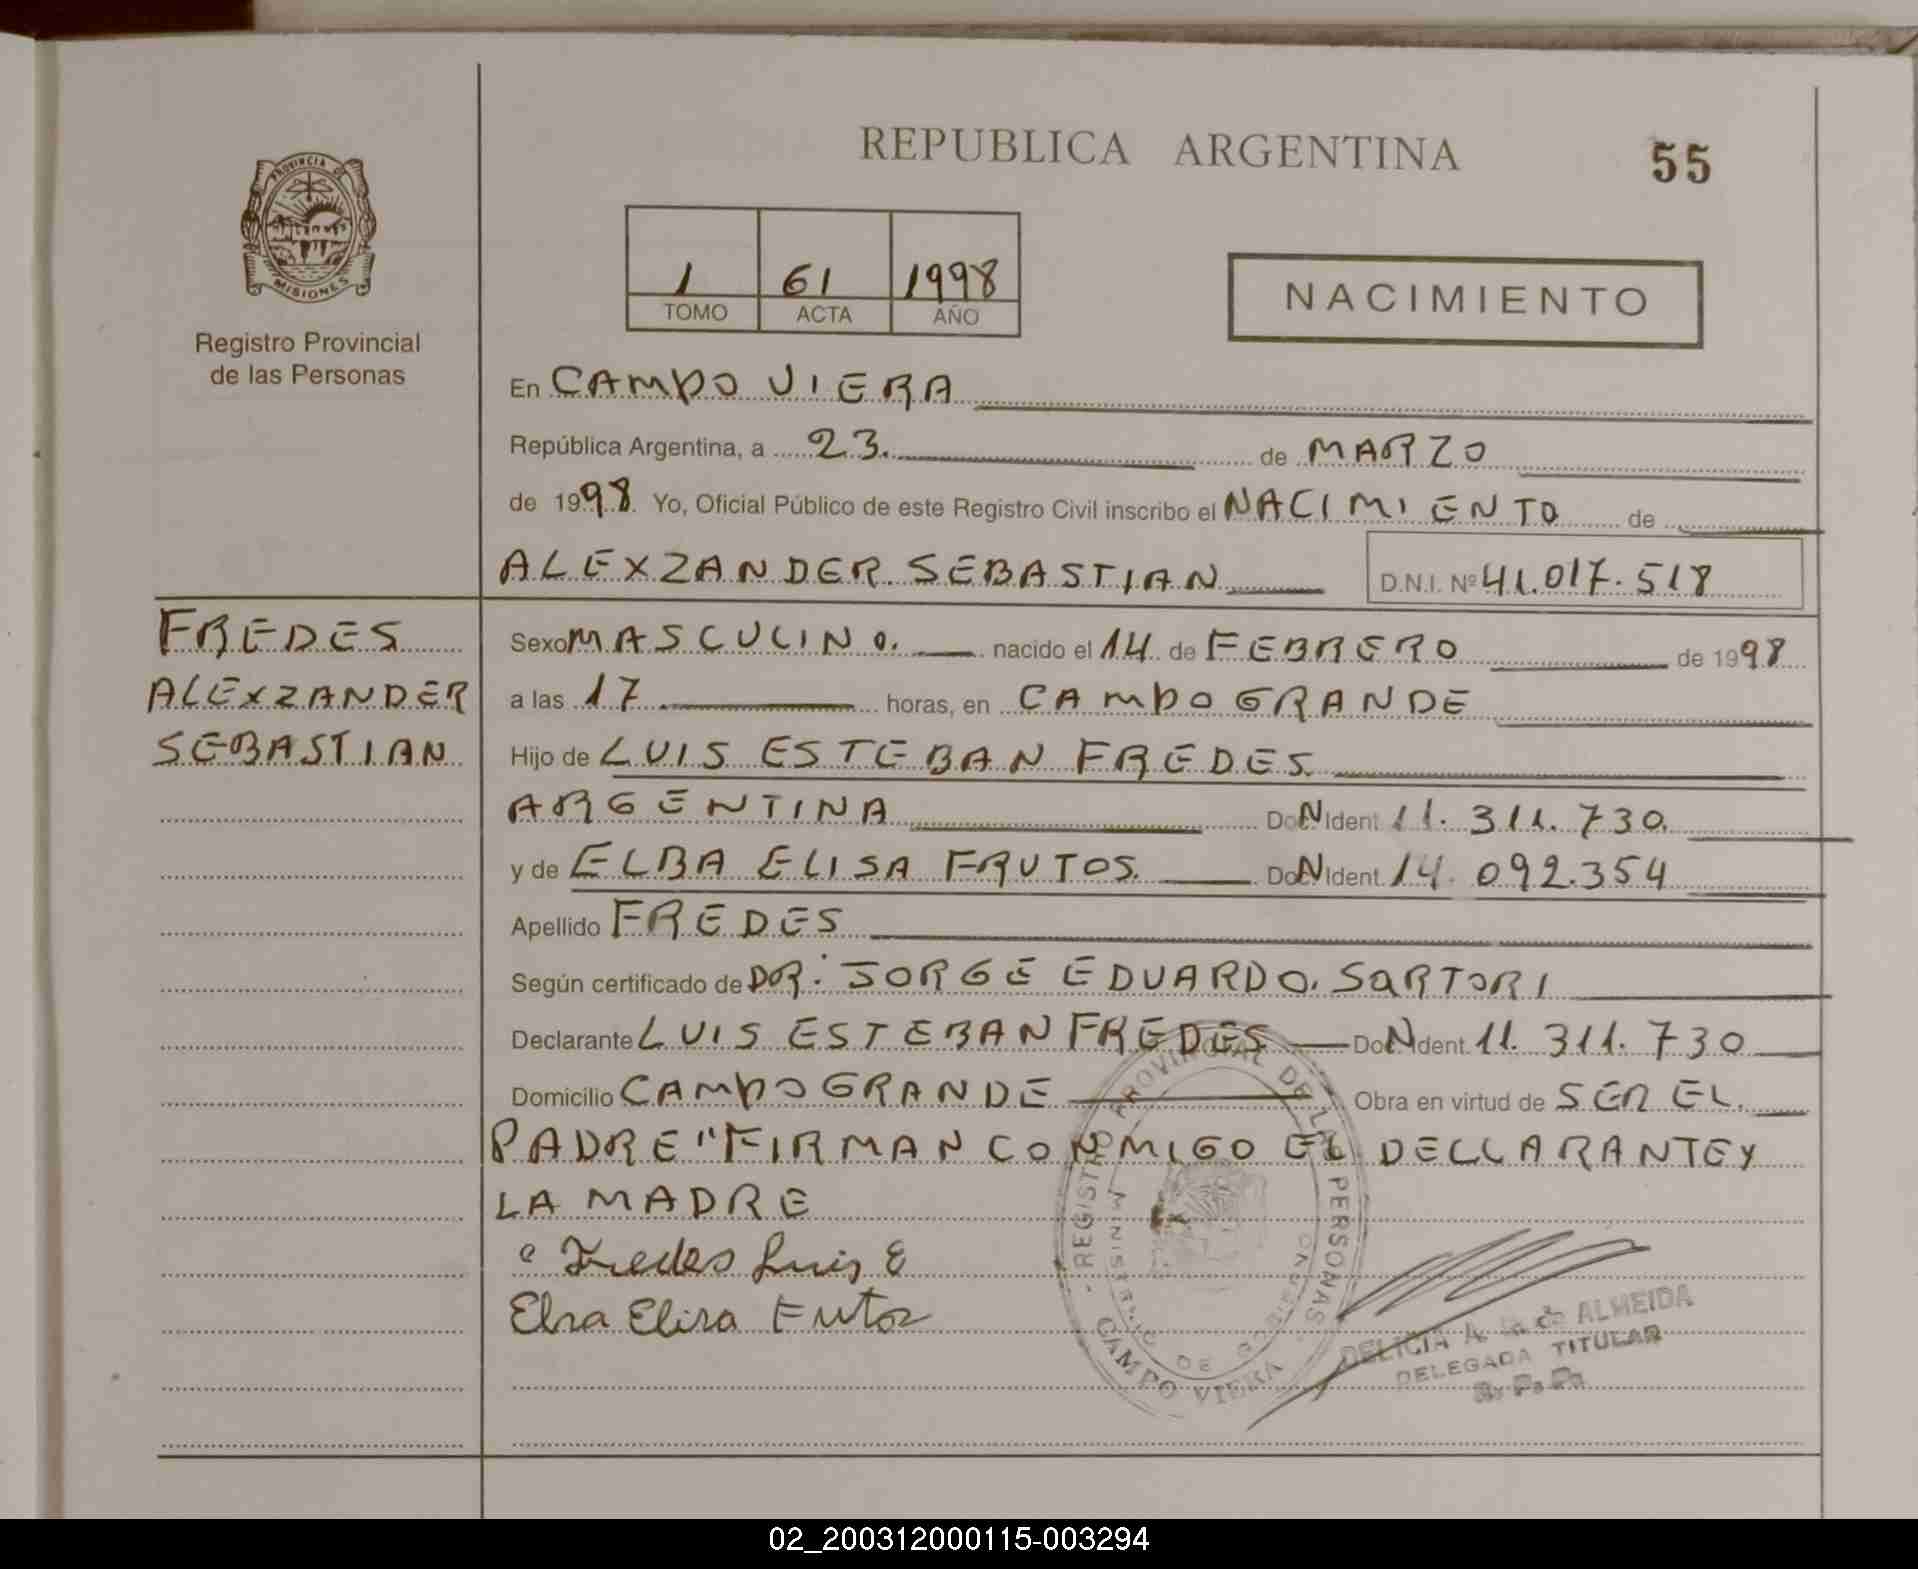 REPUBLICA ARGENTINA
55
PROVINCIA DE
MISIONES
Registro Provincial
de las Personas
1 61 1998
TOMO ACTA AÑO
NACIMIENTO
En CAMPO VIERA
República Argentina, a 23. de MARZO
de 1998. Yo, Oficial Público de este Registro Civil inscribo el NACIMIENTO de
ALEXZANDER SEBASTIAN D.N.I. Nº 41.017.518
FREDES
ALEXZANDER
SEBASTIAN
Sexo MASCULINO. nacido el 14 de FEBRERO de 1998
a las 17 horas, en CAMPO GRANDE
Hijo de LUIS ESTEBAN FREDES.
ARGENTINA Doc. N Ident. 11.311.730.
y de ELBA ELISA FRUTOS. Doc. N Ident. 14.092.354
Apellido FREDES
Según certificado de DR: JORGE EDUARDO. SARTORI
Declarante LUIS ESTEBAN FREDES Doc. N Ident. 11.311.730
Domicilio CAMPO GRANDE Obra en virtud de SER EL.
PADRE "FIRMAN CONMIGO EL DECLLARANTE Y
LA MADRE
Fredes Luis E
Elva Elisa Frutos
- REGISTRO PROVINCIAL DE LAS PERSONAS -
MINISTERIO DE GOBIERNO
CAMPO VIERA
DELICIA A. de ALMEIDA
DELEGADA TITULAR
02_200312000115-003294